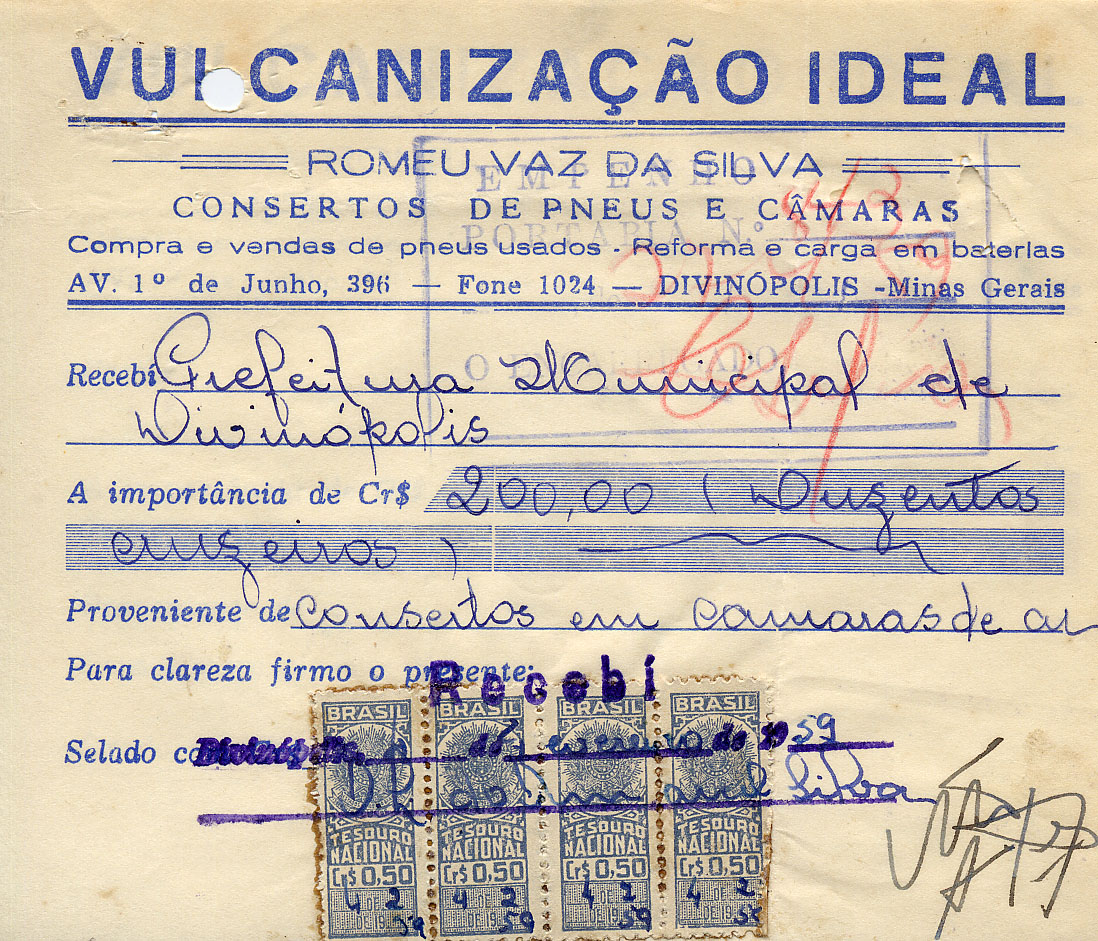 VULCANIZAÇÃO IDEAL
ROMEU VAZ DA SILVA
EMPENHO
CONSERTOS DE PNEUS E CÂMARAS
PORTARIA N.º
Compra e vendas de pneus usados - Reforma e carga em baterias
AV. 1º de Junho, 396 — Fone 1024 — DIVINÓPOLIS - Minas Gerais
Recebí Prefeitura Municipal de
Divinópolis
A importância de Cr$ 200,00 ( Duzentos
cruzeiros )
Proveniente de Consertos em camaras de ar
Para clareza firmo o presente:
Recebí
BRASIL BRASIL BRASIL BRASIL
Selado
Divinópolis, de Fevereiro de 19 59
Silva
TESOURO NACIONAL TESOURO NACIONAL TESOURO NACIONAL TESOURO NACIONAL
Cr$ 0,50 Cr$ 0,50 Cr$ 0,50 Cr$ 0,50
4 2 4 2 4 2 4 2
DE 19 59 DE 19 59 DE 19 59 DE 19